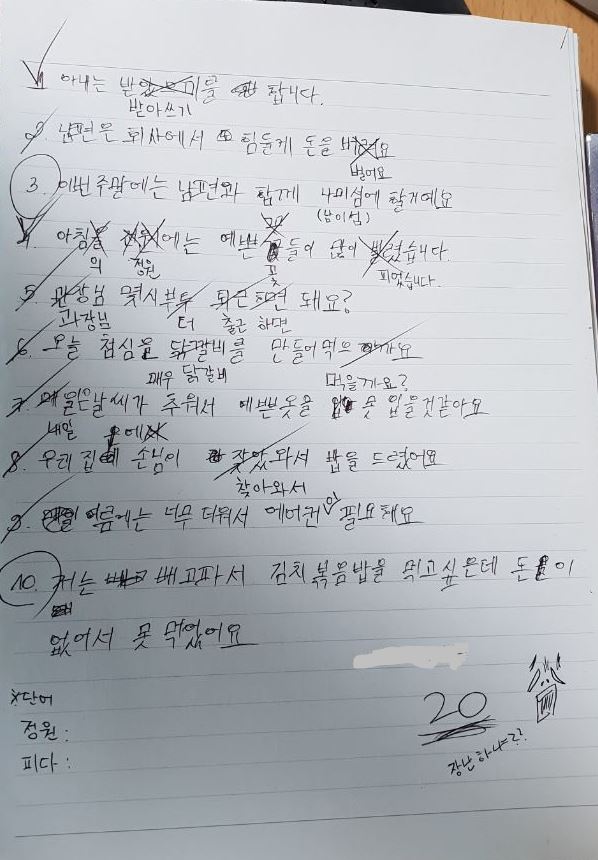 1. 아내는 받 를 합니다.
받아쓰기
2. 남편은 회사에서 힘들게 돈을 요
벌어요
3. 이번 주말에는 남편와 함께 나미섬에 할거예요
(남이섬)
4. 아침 에는 예쁜 들이 많이 렸습니다.
의 정원 꽃 피었습니다.
5. 과장님 몇시부투 퇴근 하면 돼요?
과장님 터 출근 하면
6. 오늘 점심을 닭갈비를 만들어 먹으 까요
매우 닭갈비 먹을까요?
7. 메일은 날씨가 추워서 예쁜옷을 못 입을것같아요
내일
8. 우리 집에 손님이 잦았와서 밥을 드렸어요
찾아와서
9. 여름에는 너무 더워서 에어컨이 필요해요
10. 저는 배고파서 김치볶음밥을 먹고싶은데 돈이
없어서 못 먹었어요
※단어
정원 :
피다 :
20
장난하냐??